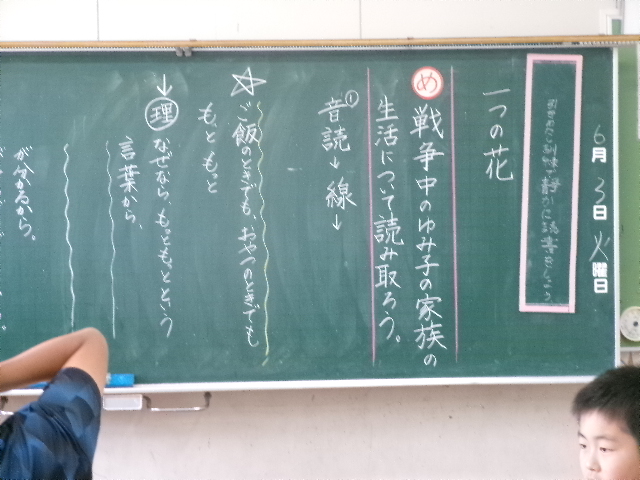 6月3日火曜日
一つの花
め 戦争中のゆみ子の家族の
生活について読み取ろう。
①音読→線→
☆ご飯のときでも、おやつのときでも
もっともっと
→理 なぜなら、もっともっとという
言葉から、
が分かるから。